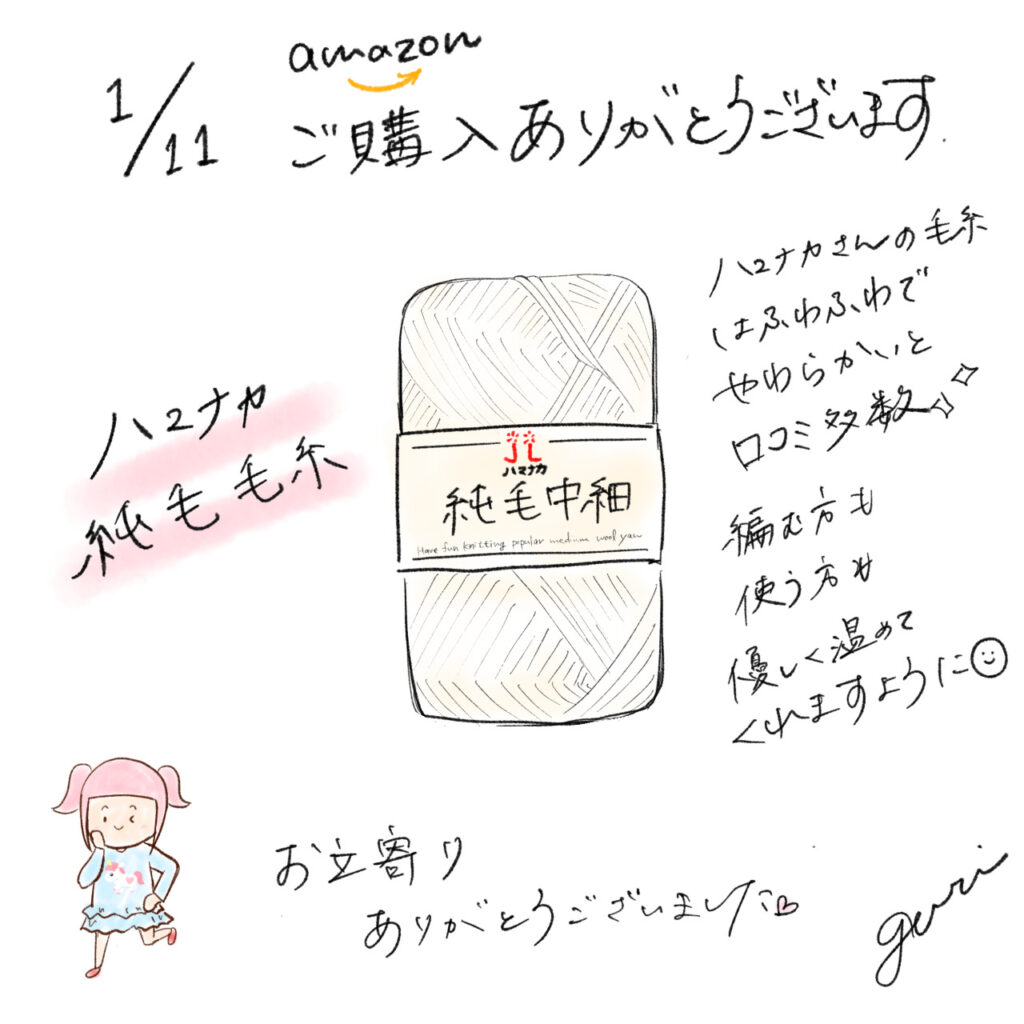 1/11
amazon
ご購入ありがとうございます
ハマナカさんの毛糸
はふわふわで
やわらかいと
口コミ多数
ハマナカ
純毛毛糸
ハマナカ
純毛中細
Have fun knitting popular medium wool yaw
編む方も
使う方も
優しく温めて
くれますように
お立寄り
ありがとうございました
guri